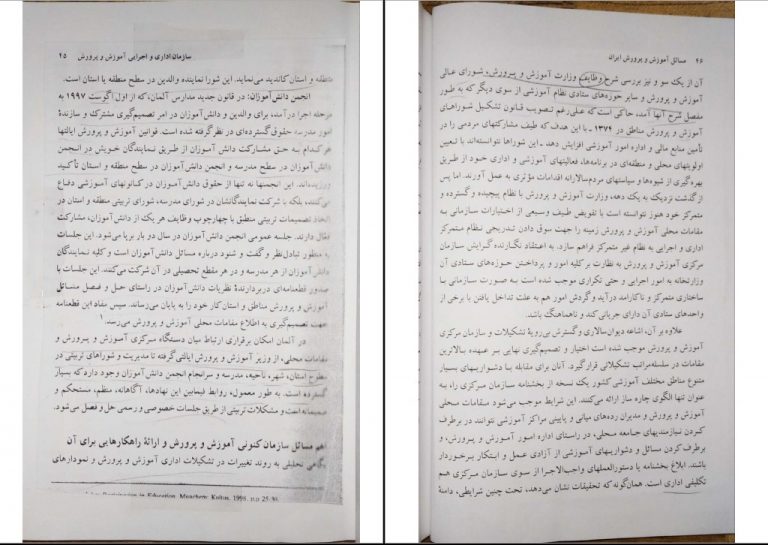 سازمان اداری و اجرایی آموزش و پرورش ۴۵
منطقه و استان کاندید می‌نماید. این شورا نماینده والدین در سطح منطقه یا استان است.
انجمن دانش‌آموزان: در قانون جدید مدارس آلمان، که از اول آگوست ۱۹۹۷ به
مرحله اجرا درآمد، برای والدین و دانش‌آموزان در امر تصمیم‌گیری مشترک و سازندهٔ
امور مدرسه حقوق گسترده‌ای در نظر گرفته شده است. قوانین آموزش و پرورش ایالتها
هر کدام به حق مشارکت دانش‌آموزان از طریق نمایندگان خویش در انجمن
دانش‌آموزان در سطح مدرسه و انجمن دانش‌آموزان در سطح منطقه و استان تأکید
ورزیده‌اند. این انجمنها نه تنها از حقوق دانش‌آموزان در کانونهای آموزشی دفاع
می‌کنند، بلکه با شرکت نمایندگانشان در شورای مدرسه، شورای تربیتی منطقه و استان در
اتخاذ تصمیمات تربیتی منطبق با چهارچوب وظایف هر یک از دانش‌آموزان، مشارکت
فعال دارند. جلسه عمومی انجمن دانش‌آموزان در سال دو بار برپا می‌شود. این جلسات
به منظور تبادل‌نظر و گفت و شنود درباره مسائل دانش‌آموزان است و کلیه نمایندگان
دانش‌آموزان از هر مدرسه و در هر مقطع تحصیلی در آن شرکت می‌کنند. این جلسات با
صدور قطعنامه‌ای دربردارندهٔ نظریات دانش‌آموزان در راستای حل و فصل مسائل
آموزش و پرورش مناطق و استان کار خود را به پایان می‌رساند. سپس مفاد این قطعنامه
جهت تصمیم‌گیری به اطلاع مقامات محلی آموزش و پرورش می‌رسد.۱
در آلمان امکان برقراری ارتباط میان دستگاه مرکزی آموزش و پرورش و
مقامات محلی، از وزیر آموزش و پرورش ایالتی گرفته تا مدیریت و شوراهای تربیتی در
سطوح استان، شهر، ناحیه، مدرسه و سرانجام انجمن دانش‌آموزان وجود دارد که بسیار
گسترده است. به طور معمول، روابط فیمابین این نهادها، آگاهانه، منظم، مستحکم و
صمیمانه است و مشکلات تربیتی از طریق جلسات خصوصی و رسمی حل و فصل می‌شود.
اهم مسائل سازمان کنونی آموزش و پرورش و ارائهٔ راهکارهایی برای آن
نگاهی تحلیلی به روند تغییرات در تشکیلات اداری آموزش و پرورش و نمودارهای
in Education, Muachen: 1998,
۴۶ مسائل آموزش و پرورش ایران
آن از یک سو و نیز بررسی شرح وظایف وزارت آموزش و پرورش، شورای عالی
آموزش و پرورش و سایر حوزه‌های ستادی نظام آموزشی از سوی دیگر که به طور
مفصل شرح آنها آمد، حاکی است که علی‌رغم تصویب قانون تشکیل شوراهای
آموزش و پرورش مناطق در ۱۳۷۴ ـ با این هدف که طیف مشارکتهای مردمی را در
تأمین منابع مالی و اداره امور آموزشی افزایش دهد ـ این شوراها نتوانسته‌اند با تعیین
اولویتهای محلی و منطقه‌ای در برنامه‌ها، فعالیتهای آموزشی و اداری خود از طریق
بهره‌گیری از شیوه‌ها و سیاستهای مردم‌سالارانه اقدامات مؤثری به عمل آورند. اما پس
از گذشت نزدیک به یک دهه، وزارت آموزش و پرورش با نظام پیچیده و گسترده و
متمرکز خود هنوز نتوانسته است با تفویض طیف وسیعی از اختیارات سازمانی به
مقامات محلی آموزش و پرورش زمینه را جهت سوق دادن تدریجی نظام متمرکز
اداری و اجرایی به نظام غیر متمرکز فراهم سازد. به اعتقاد نگارنده گرایش سازمان
مرکزی آموزش و پرورش به نظارت بر کلیه امور و پرداختن حوزه‌های ستادی آن
وزارتخانه به امور اجرایی و حتی تکراری موجب شده است به صورت سازمانی با
ساختاری متمرکز و ناکارامد درآید و گردش امور هم به علت تداخل یافتن با برخی از
واحدهای ستادی آن دارای جریانی کند و ناهماهنگ باشد.
علاوه بر آن، اشاعه دیوان‌سالاری و گسترش بی‌رویهٔ تشکیلات و سازمان مرکزی
آموزش و پرورش موجب شده است اختیار و تصمیم‌گیری نهایی بر عهده بالاترین
مقامات در سلسله‌مراتب تشکیلاتی قرار گیرد. آنان برای مقابله با دشواریهای بسیار
متنوع مناطق مختلف آموزشی کشور یک نسخه از بخشنامه سازمان مرکزی را، به
عنوان تنها الگوی چاره ساز ارائه می‌کنند. این شرایط موجب می‌شود مقامات محلی
آموزش و پرورش و مدیران رده‌های میانی و پایینی مراکز آموزشی نتوانند در برطرف
کردن نیازمندیهای جامعه محلی، در راستای اداره امور آموزش و پرورش، و
برطرف کردن مسائل و دشواریهای آموزشی از آزادی عمل و ابتکار برخوردار
باشند. ابلاغ بخشنامه یا دستورالعملهای واجب‌الاجرا از سوی سازمان مرکزی هم
تکلیفی اداری است. همان‌گونه که تحقیقات نشان می‌دهد، تحت چنین شرایطی، دامنهٔ